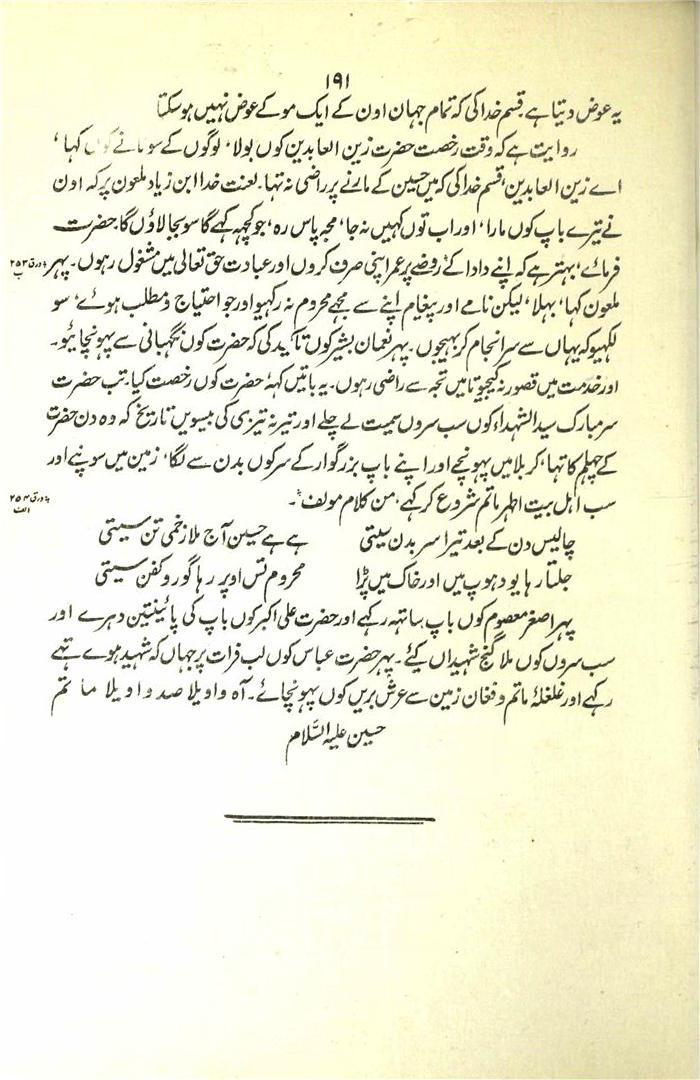 ۱۹۱
یہ عوض دیتا ہے۔ قسم خدا کی کہ تمام جہان اون کے ایک مو کے عوض نہیں ہو سکتا
روایت ہے کہ وقت رخصت حضرت زین العابدین کوں بولا، لوگوں کے سو کہا،
اے زین العابدین، قسم خدا کی کہ میں حسین کے مارنے پر راضی نہ تہا۔ لعنت خدا ابن زیاد ملعون پر کہ اون
نے تیرے باپ کوں مارا، اور اب توں کہیں نہ جا، مجہ پاس رہ، جو کچہ کہے گا سو بجا لاؤں گا۔ حضرت
فرمائے، بہتر ہے کہ اپنے دادا کے روضے پر عمر اپنی صرف کروں اور عبادت حق تعالی میں مشغول رہوں۔ پہر
ورق ۲۵۳ ب
ملعون کہا، بہلا، لیکن نامے اور پیغام اپنے سے مجے محروم نہ رکہیو اور جو احتیاج و مطلب ہوئے، سو
لکہیو کہ یہاں سے سر انجام کر بہیجوں۔ پہر نعمان بشیر کوں تاکید کی کہ حضرت کوں نگہبانی سے پہونچائیو۔
اور خدمت میں قصور نہ کیجیو تا میں تجہ سے راضی رہوں۔ یہ باتیں کہہ حضرت کوں رخصت کیا۔ تب حضرت
سر مبارک سید الشہداء کوں سب سروں سمیت لے چلے اور تیرہ تیزی کی بیسویں تاریخ کہ وہ دن حضرت
کے چہلم کا تہا، کربلا میں پہونچے اور اپنے باپ بزرگوار کے سر کوں بدن سے لگا، زمین میں سونپے اور
سب اہل بیت اطہر ماتم شروع کر کہے، من کلام مولف۔
ورق ۲۵۴ الف
چالیس دن کے بعد تیرا سر بدن سیتی ہے ہے حسین آج ملا زخمی تن سیتی
جلتا رہا یو دہوپ میں اور خاک میں پڑا محروم تس اوپر رہا گور و کفن سیتی
پہر اصغر معصوم کوں باپ ساتہہ رکہے اور حضرت علی اکبر کوں باپ کی پائینتین دہرے اور
سب سروں کوں ملا گنج شہیداں کیئے۔ پہر حضرت عباس کوں لب فرات پر جہاں کہ شہید ہوے تہے
رکہے اور غلغلۂ ماتم و فغان زمین سے عرش بریں کوں پہونچائے۔ آہ واویلا صد واویلا ماتم
حسین علیہ السّلام